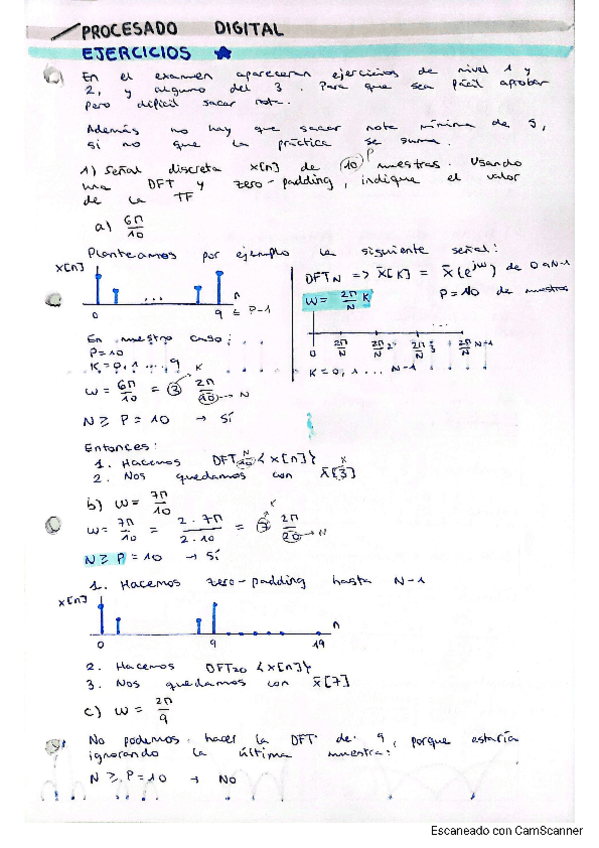 PROCESADO DIGITAL
EJERCICIOS
En el examen aparecerán ejercicios de nivel 1 y
2, y alguno del 3. Para que sea fácil aprobar
pero difícil sacar nota.
Además no hay que sacar nota mínima de 5,
si no que la práctica se suma.
1) Señal discreta x[n] de 10 muestras. Usando
P
una DFT y zero-padding, indique el valor
de la TF
a) 6π/10
Planteamos por ejemplo la siguiente señal:
x[n]
...
n
0 9 ≤ P-1
DFT_N => X̄[K] = X̄(e^jω) de 0 a N-1
ω = 2π/N K
P=10 de muestras
...
0 2π/N 2π/N 2 2π/N 3 2π/N N-1
K=0, 1 ... N-1
En nuestro caso:
P=10
K=0, 1 ..., 9
ω = 6π/10 = 3 2π/10 → N
K
N ≥ P = 10 → Sí
Entonces:
1. Hacemos DFT10 {x[n]}
N
2. Nos quedamos con X̄[3]
K
b) ω = 7π/10
ω = 7π/10 = 2·7π/2·10 = 7 2π/20 → N
K
N ≥ P = 10 → Sí
1. Hacemos zero-padding hasta N-1
x[n]
n
0 9 19
2. Hacemos DFT20 {x[n]}
3. Nos quedamos con X̄[7]
c) ω = 2π/9
No podemos hacer la DFT de 9, porque estaría
ignorando la última muestra:
N ≥ P = 10 → No
Escaneado con CamScanner